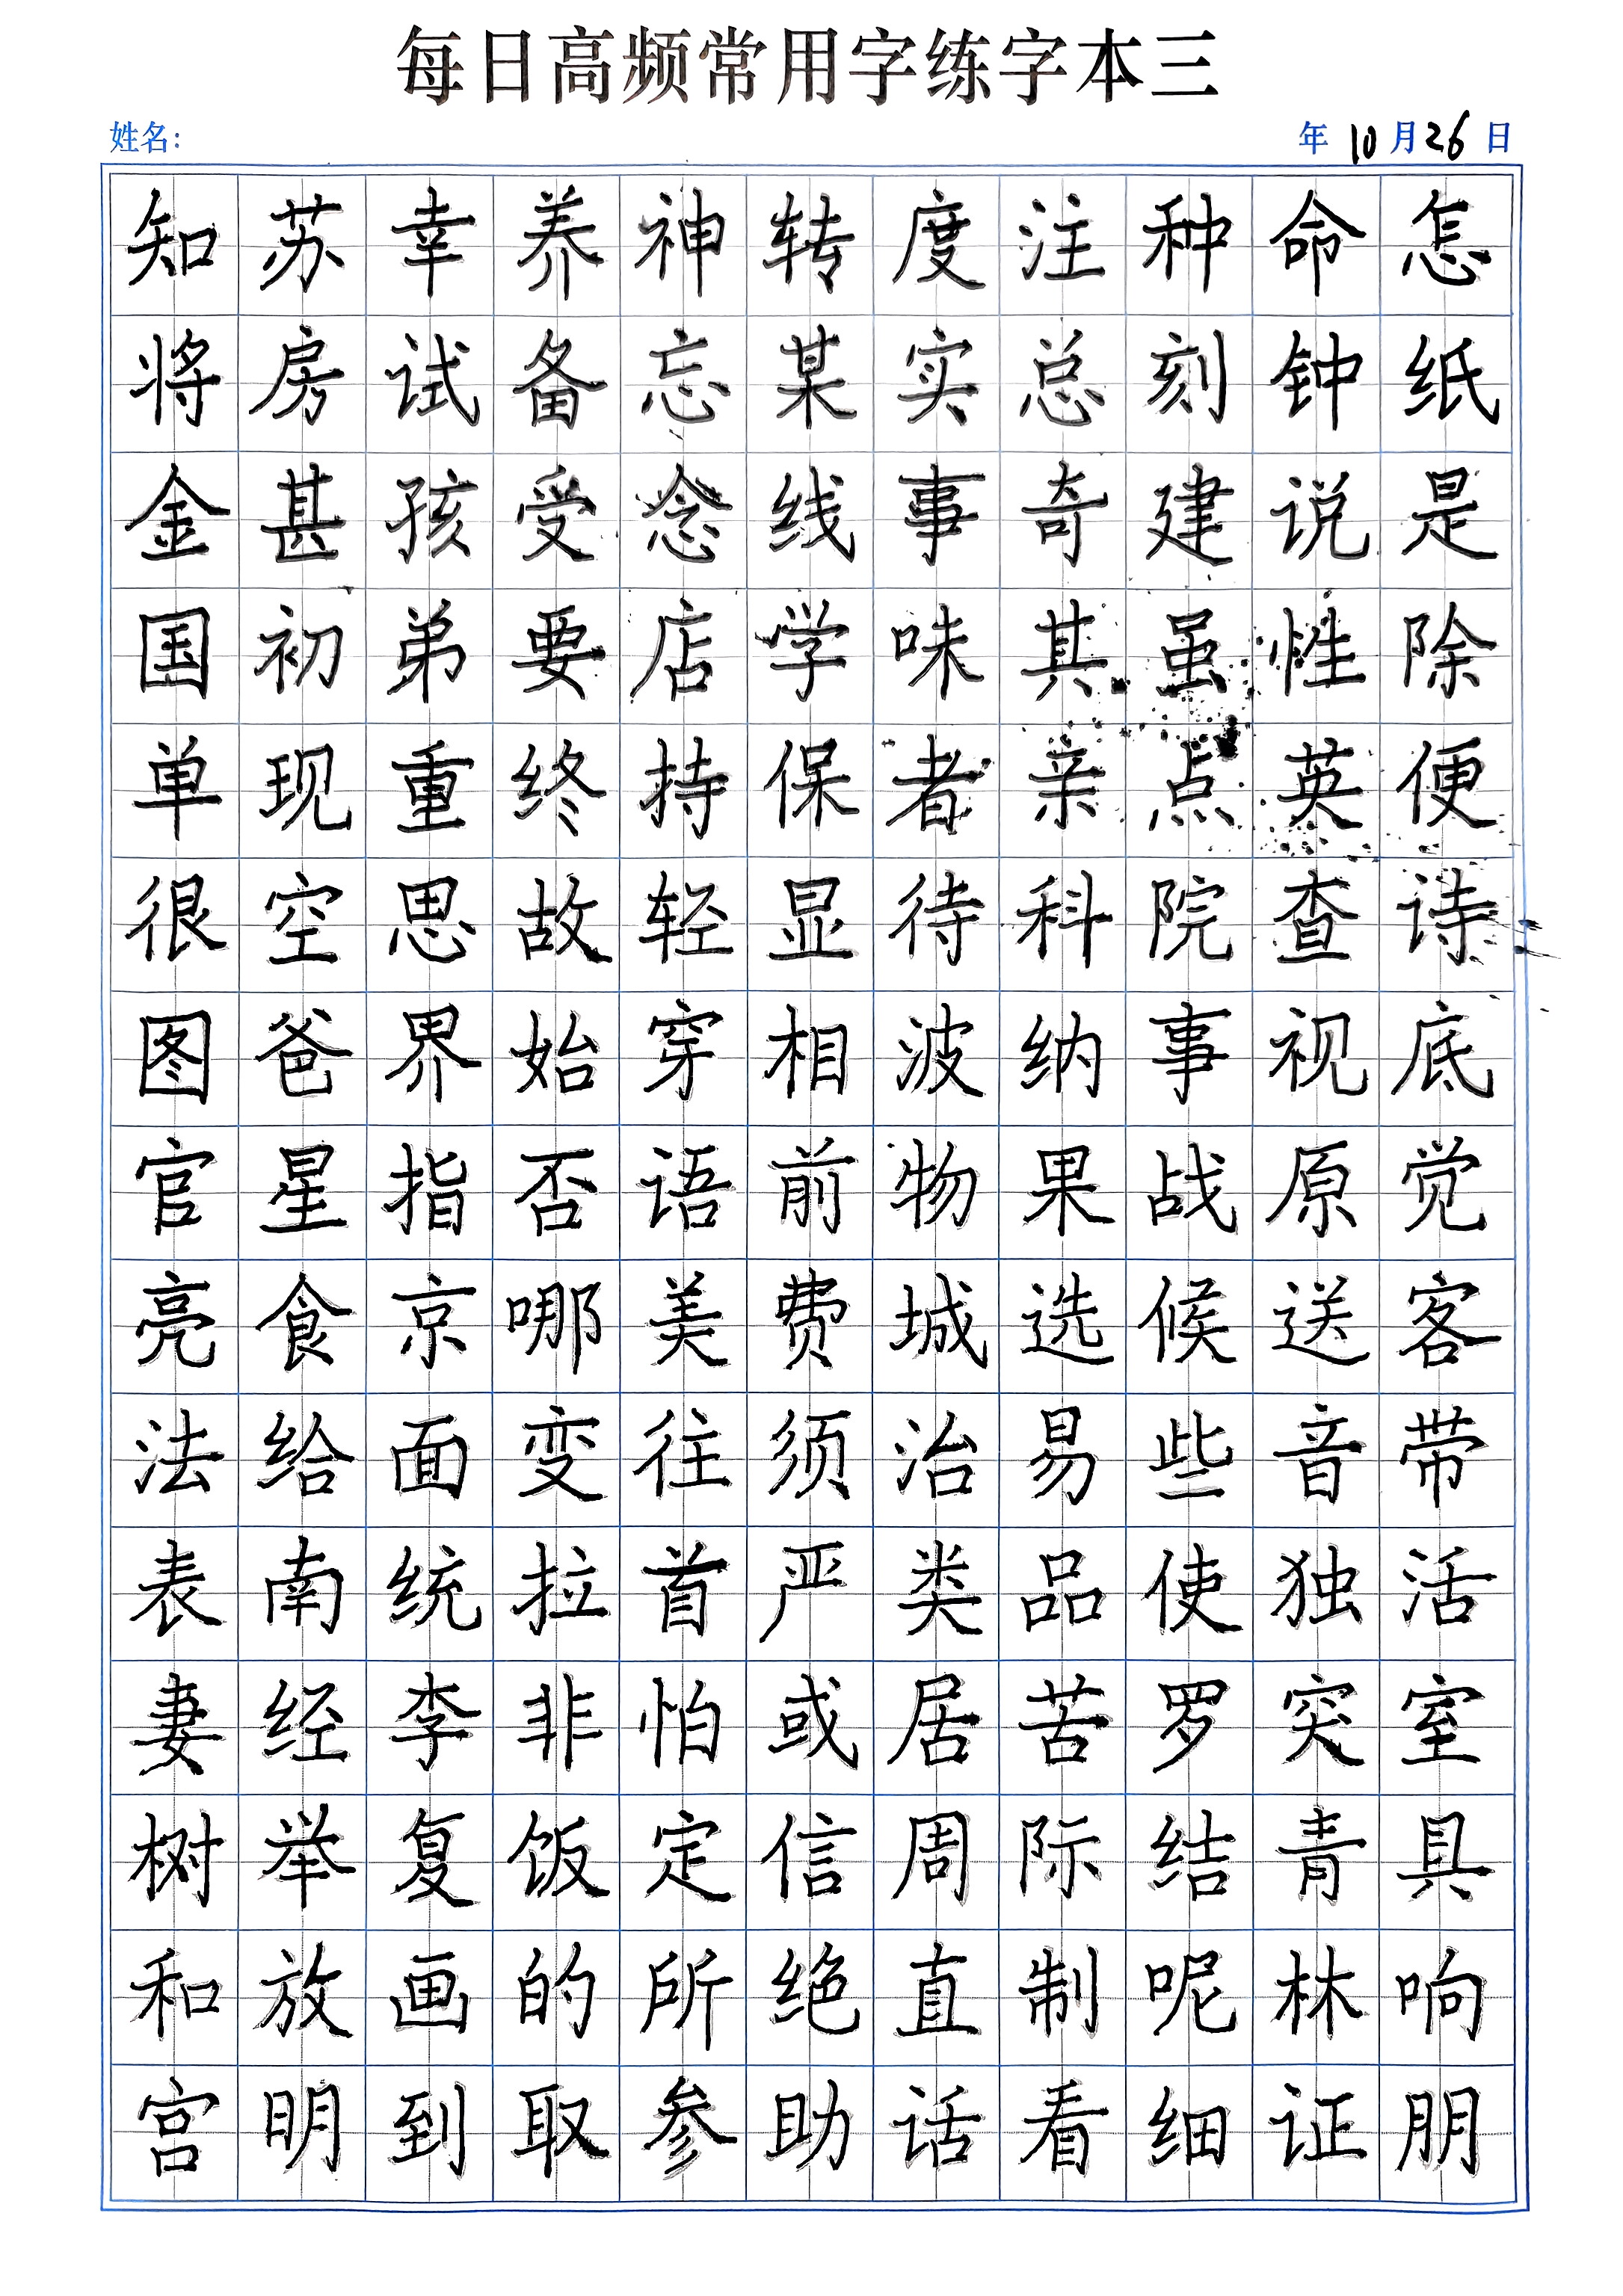 每日高频常用字练字本三
姓名： 年 10 月 26 日
知苏幸养神转度注种命怎
将房试备忘某实总刻钟纸
金甚孩受念线事奇建说是
国初弟要店学味其虽性除
单现重终持保者亲点英便
很空思故轻显待科院查诗
图爸界始穿相波纳事视底
官星指否语前物果战原觉
亮食京哪美费城选候送客
法给面变往须治易些音带
表南统拉首严类品使独活
妻经李非怕或居苦罗突室
树举复饭定信周际结青具
和放画的所绝直制呢林响
宫明到取参助话看细证朋